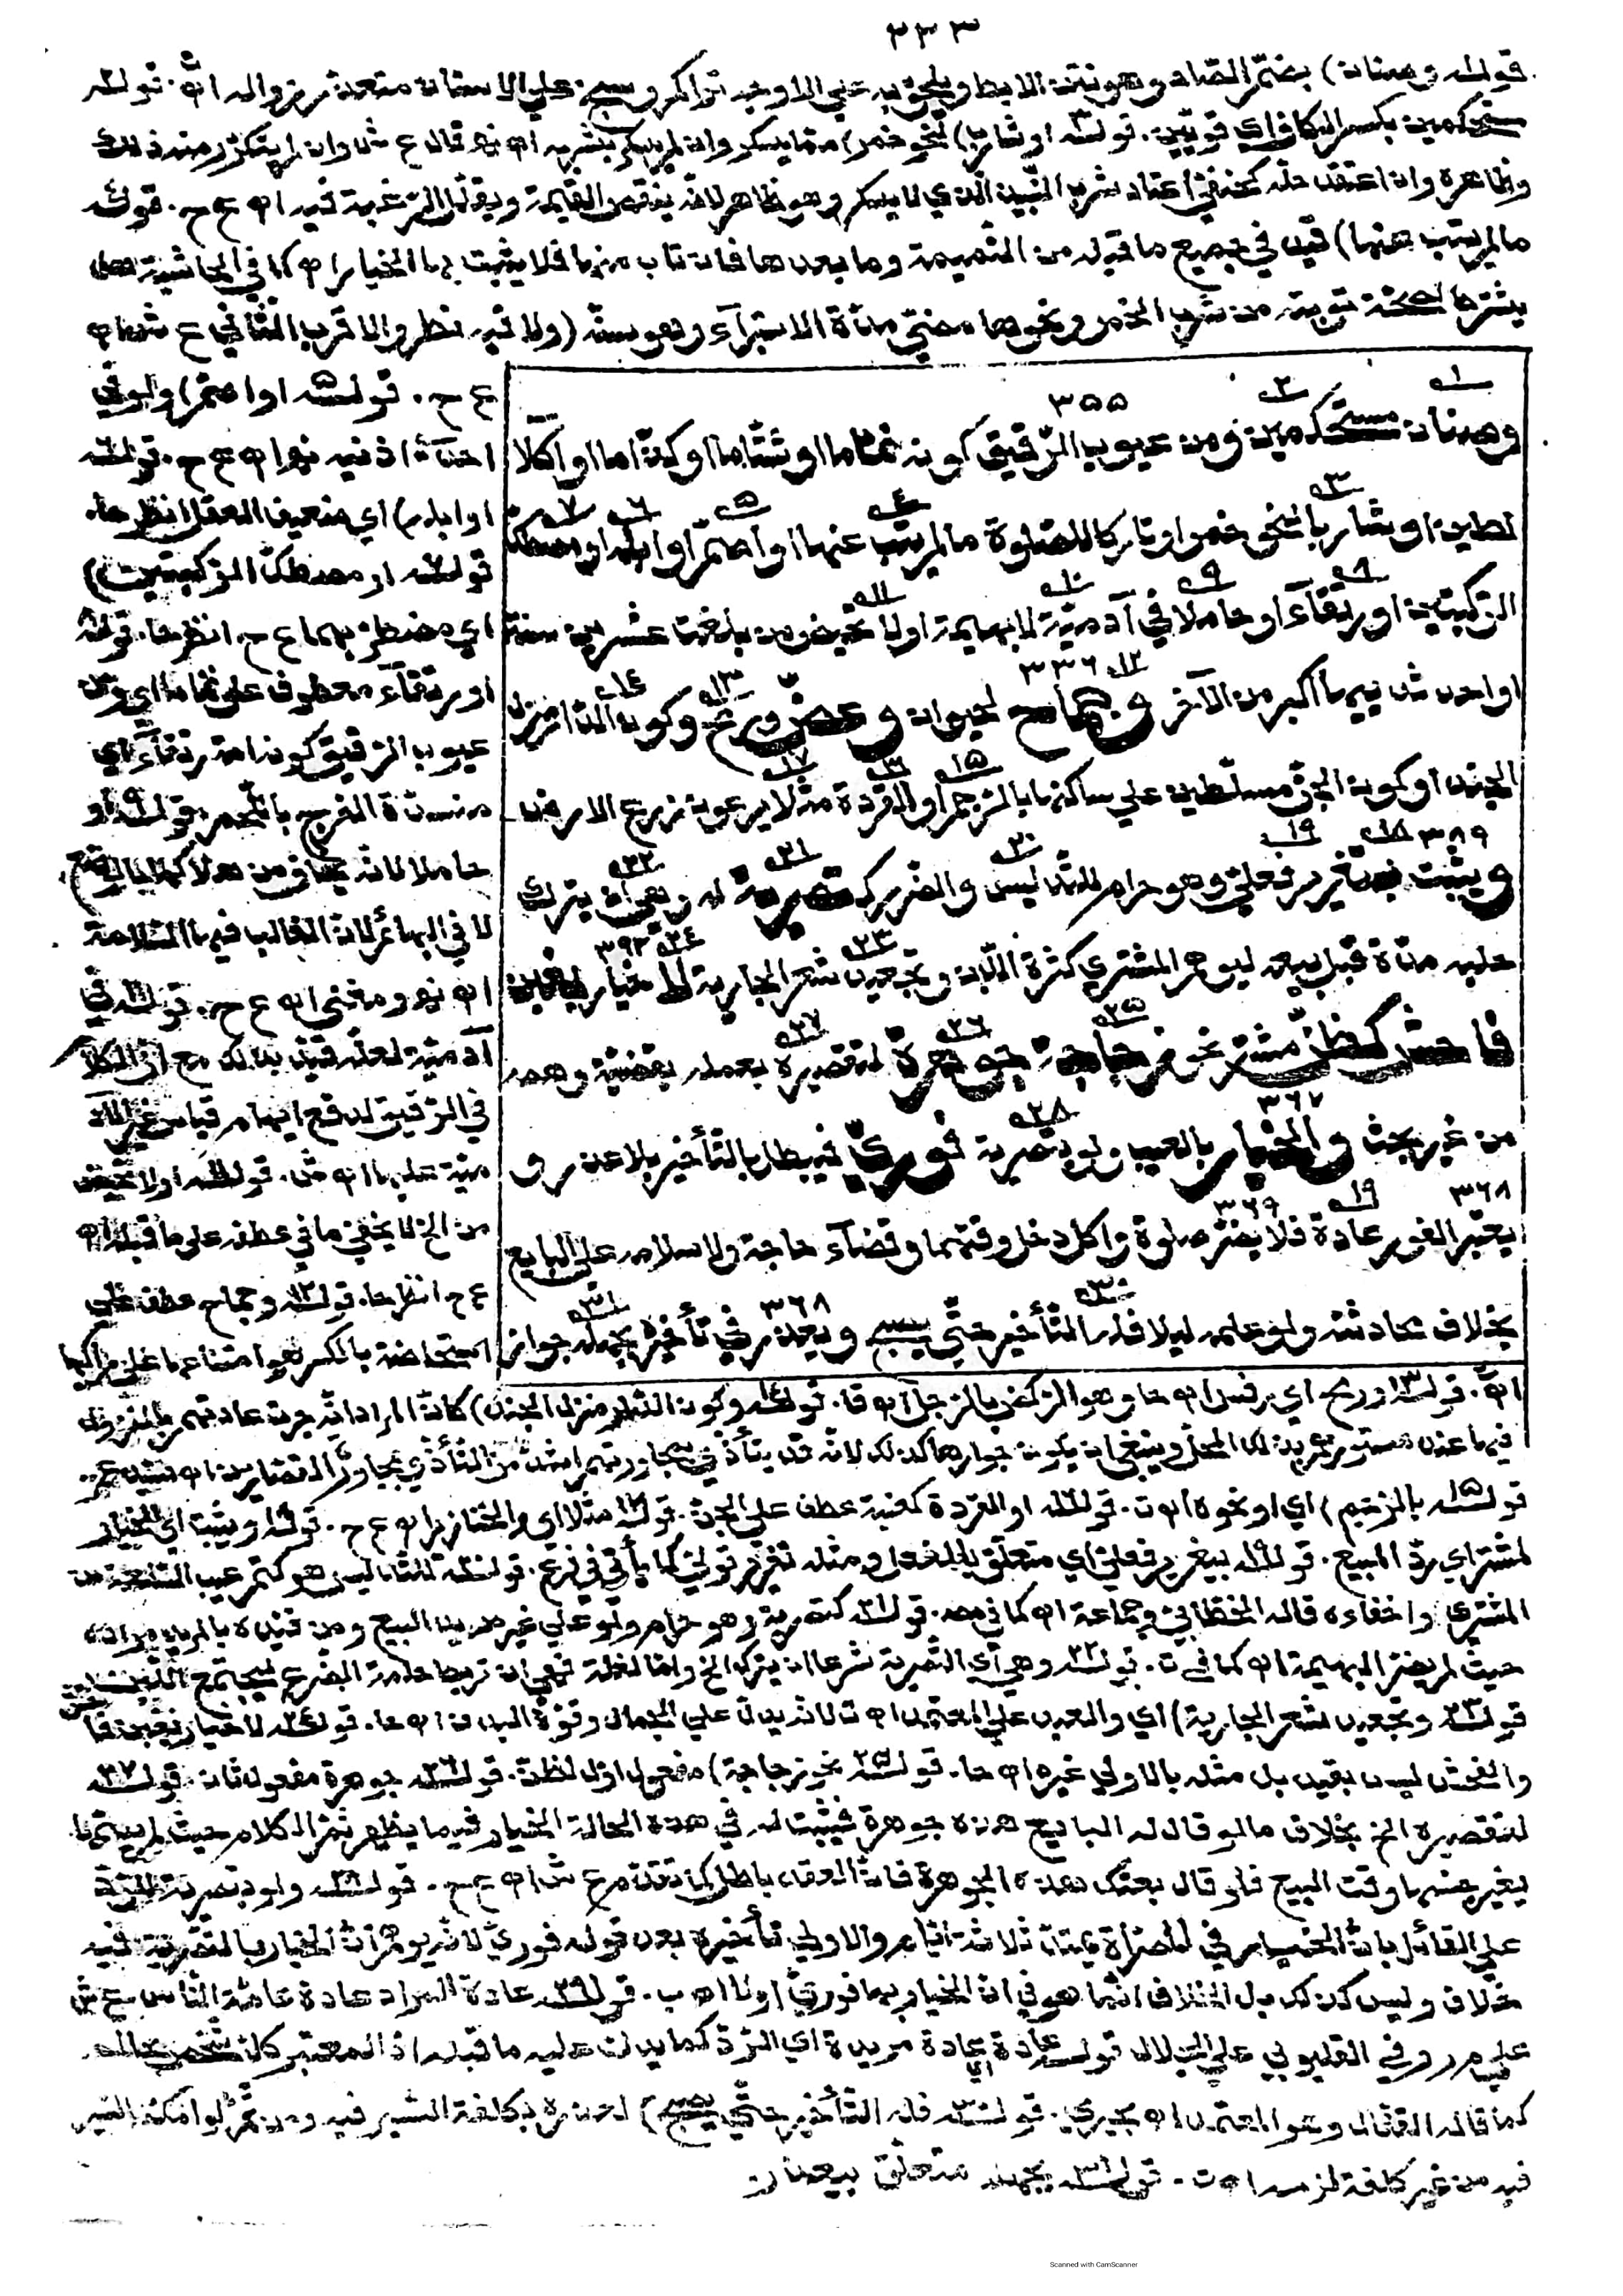 ٣٣٣
قولـه وصنان) بضمّ الصاد وهو نتن الابط ويلحق به على الاوجه تراكم وسخ على الاسنان متعذّر زواله اﻫ. قولـه
مستحكمين بكسر الكاف اي قويّين. قولـه او شاربا) لنحو خمر) ممّا يسكر وان لم يسكر بشربه اﻫ نعم قال ع ش وان لم يتكرّر منه ذلك
وظاهره وان اعتقد حله كحنفيّ اعتاد شرب النبيذ الذي لا يسكر وهو ظاهر لانّه ينقص القيمة ويقلّل الرّغبة فيه اﻫ ع ح. قولـه
مالم يتب عنها) قيّد في جميع ما قبله من النّميمة وما بعدها فان تاب منها فلا يثبت بها الخيار اﻫ كما في الحاشية هل
يشترط لصحّة توبته من شرب الخمر ونحوها مضيّ مدّة الاستبرآء وهو سنة (ولا فيه نظر والاقرب الثّاني ع ش اﻫ
ع ح. قولـه او اصمّ) ولو في
احدى اذنيه نعم اﻫ ع ح. قولـه
او ابله) اي ضعيف العقل انظرها.
قولـه او مصطكّ الرّكبتين)
اي مضطربهما ع ح انظرها. قولـه
او رتقآء معطوف على نمّاما اي ومن
عيوب الرّقيق كونه امة رتقآء اي
منسدّة الفرج باللّحم. قولـه او
حاملا لانّه يخاف من هلاكها بالوضع
لا في البهائم لانّ الغالب فيها السّلامة
اﻫ نعم ومغني اﻫ ع ح. قولـه في
آدميّة لعلّه قيّد بذلك مع انّ الكلام
في الرّقيق لدفع ايهام قياس غير الآد
ميّة عليها اﻫ ش. قولـه او لا تحيض
من الخ لا يخفى ما في عطفه على ما قبله اﻫ
ع ح انظرها. قولـه وجماح عطف على
استحاضة بالكسر هو امتناعها على راكبها
٣٥٥
وصنان مستحكمين ومن عيوب الرّقيق كونه نمّاما او شتّاما او كذّاما او اكّلا
لطين او شاربا لنحو خمر او تاركا للصّلوة مالم يتب عنها او اصمّ او ابله او مصطكّ
الرّكبتين او رتقآء او حاملا في آدميّة لا بهيمة او لا تحيض من بلغت عشرين سنة
٣٣٦
او احد ثدييها اكبر من الآخر وجماح لحيوان وعضّ ورمح وكون الدّار منزل
الجند او كون الجنّ مسلّطين على ساكنها بالرّجم او القردة مثلا يرعون زرع الارض
٣٨٩
ويثبت بتغرير فعليّ وهو حرام للتّدليس والضّرر كتصرية له وهي ان يترك
حلبه مدّة قبل بيعه ليوهم المشتري كثرة اللّبن وتجعيد شعر الجارية لا خيار بغبن
٣٩٢
فاحش كظنّ مشتر نحو زجاجة جوهرة لتقصيره بعمله بقضيّة وهمه
٣٦٧
من غير بحث والخيار بالعيب ولو بتصرية فوريّ فيبطل بالتّأخير بلا عذر و
٣٦٨ ٣٦٩
يعتبر الفور عادة فلا يضرّ صلوة واكل دخل وقتهما وقضآء حاجة ولا سلامه على البايع
٣٦٨
بخلاف محادثته ولو علمه ليلا فله التّأخير حتّى يصبح ويعذر في تأخيره بجهله جواز
اﻫ. قولـه ورمح اي رفس اﻫ حا وهو الرّكض بالرّجل اﻫ قا. قولـه وكون الدّار منزل الجند) كانّ المراد انّه جرت عادتهم بالنّزول
فيها عند مستورعهم بذلك المحلّ وينبغي ان يكون جوارها كذلك لانّه قد يتأذّى بمجاورتهم اشدّ من التّأذّي بمجاورة القصّارين اﻫ
قولـه بالرّجم) اي او نحوه اﻫ ت. قولـه او القردة كعنبة عطف على الجنّ. قولـه مثلا اي والخنازير اﻫ ع ح. قولـه ويثبت اي الخيار
لمشتر اي ردّ المبيع. قولـه بتغرير فعليّ اي متعلّق بالفعل ومثله تغرير قوليّ كما يأتي في فرع. قولـه للتّدليس هو كتم عيب السّلعة من
المشتري واخفاءه قاله الخطّابيّ وجماعة اﻫ كما في مصـ. قولـه كتصرية وهو حرام ولو على غير مريد البيع ومن قيّده بالمريد مراده
حيث لم يضرّ البهيمة اﻫ كما في ت. قولـه وهي اي التّصرية شرعا ان يترك الخ وامّا لغة فهي ان تربط حلمة الضّرع ليجتمع اللّبن
قولـه وتجعيد شعر الجارية) اي والعبد على المعتمد اﻫ ت لانّه يدلّ على الجمال وقوّة البدن اﻫ حا. قولـه لا خيار بغبن فاحش
والفحش ليس بقيد بل مثله بالاولى غيره اﻫ حا. قولـه نحو زجاجة) مفعول اوّل لظنّ. قولـه جوهرة مفعول ثان. قولـه
لتقصيره الخ بخلاف ما لو قال له البايع هذه جوهرة فيثبت له في هذه الحالة الخيار فيما يظهر ثمّ الكلام حيث لم يسمّها
بغير جنسها وقت البيع فلو قال بعتك هذه الجوهرة فانّ العقد باطل كما تقدّم ع ش اﻫ ع ح. قولـه ولو بتصرية للرّدّ
على القائل بانّ الخيار في المصرّاة يمتدّ ثلاثة ايّام والاولى تأخيره بعد قوله فوريّ لانّه يوهم انّ الخيار بالتّصرية فيه
خلاف وليس كذلك بل الخلاف انّما هو في انّ الخيار بها فوريّ او لا اﻫ ب. قولـه عادة المراد عادة عامّة النّاس ع ش
على مر وفي القليوبي على الجلال قولـه عادة اي عادة مريدة اي الرّدّ كما يدلّ عليه ما قبله اذ المعتبر كلّ شخص بحاله
كما قاله القفّال وهو المعتمد اﻫ بجيرمي. قولـه فله التّأخير حتّى يصبح) لعذره بكلفة السّير فيه ومن ثمّ لو امكنه السّير
فيه من غير كلفة لزمه اﻫ ت. قولـه بجهله متعلّق بيعذر
Scanned with CamScanner